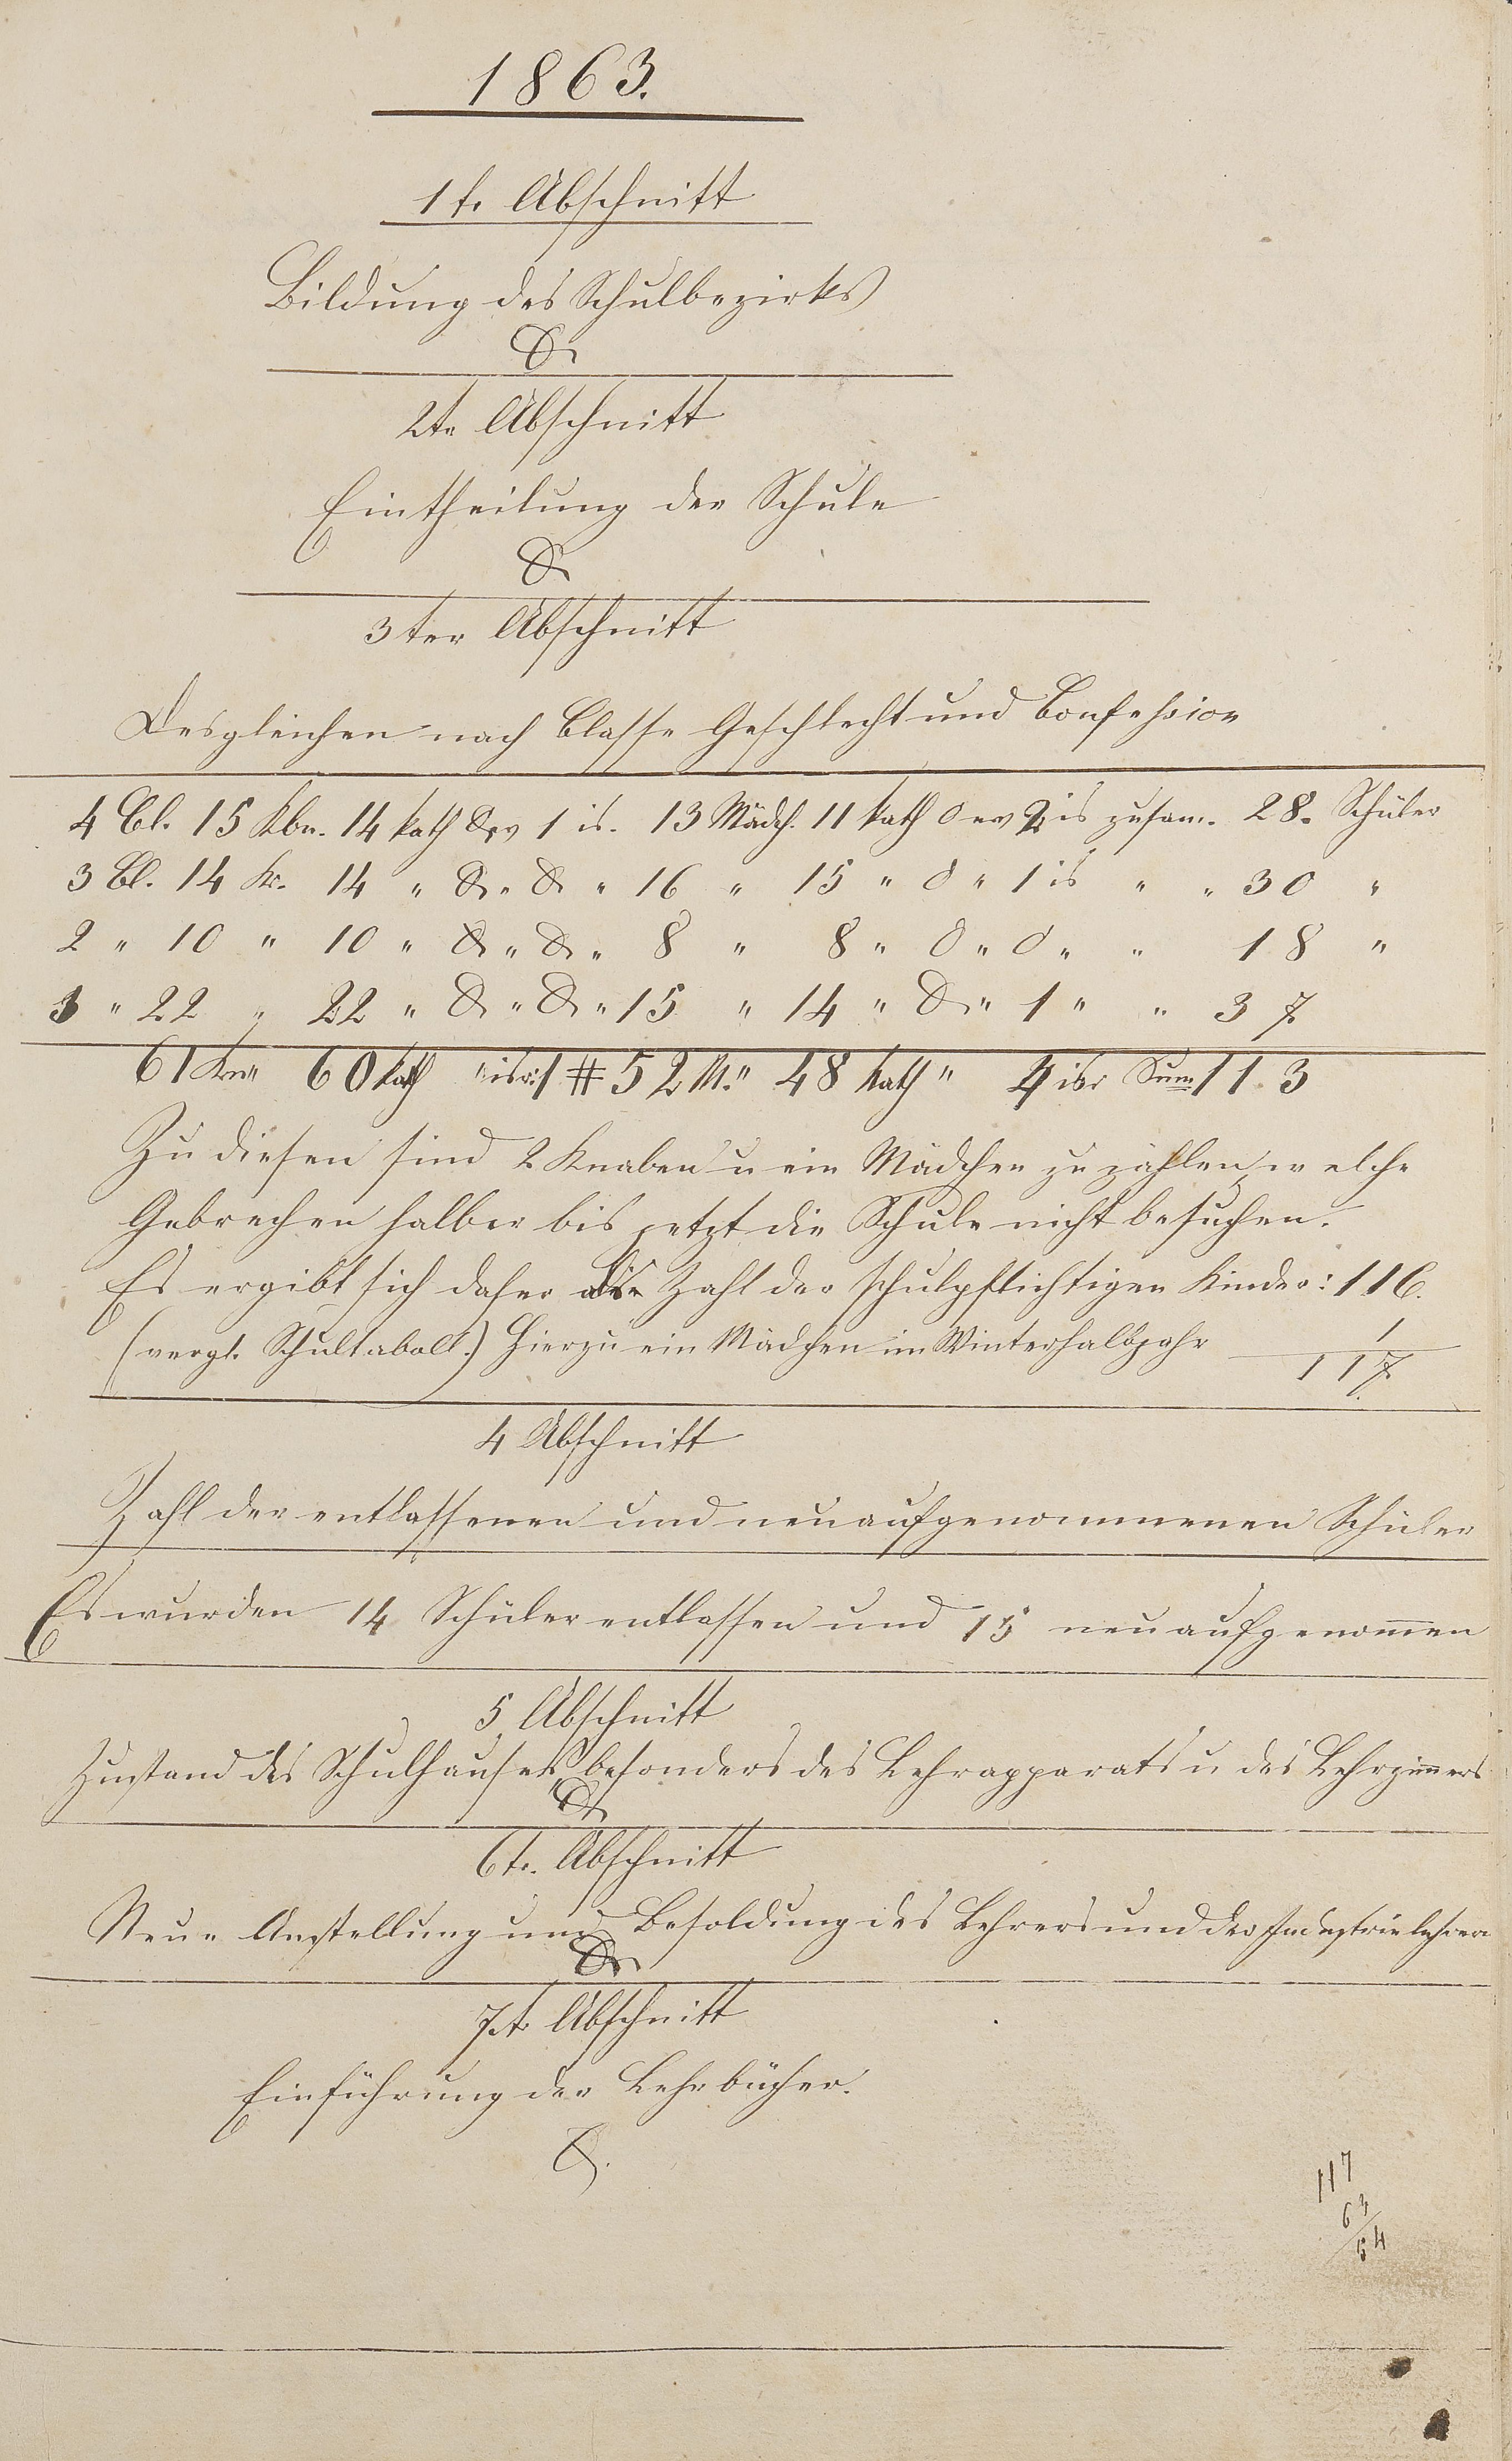 1863.
1te Abschnitt
Bildung des Schulbezirks
&
2te Abschnitt
Eintheilung der Schule
&
3ter Abschnitt
Desgleichen nach Classe Geschlecht und Confession
4 Cl. 15 Kbn. 14 kath & ev 1 is. 13 Mädch. 11 kath 0 ev 2 is zusam. 28. Schüler
3 Cl. 14 Kn. 14 " & " & " 16 " 15 " 0 " 1 is " " 30 "
2 " 10 " 10 " & " & " 8 " 8 " 0 " 0 " " 18 "
" 22 " 22 " & " & " 15 " 14 " & " 1 " " 37
61 Kn" 60 kath " isr: 1 # 52 M." 48 kath " 4 isr Sum 113
Zu diesen sind 2 Knaben u ein Mädchen zu zählen, welche
Gebrechen halber bis jetzt die Schule nicht besuchen.
Es ergibt sich daher die Zahl der schulpflichtigen Kinder: 116.
(vergl. Schultabell.) Hierzu ein Mädchen im Winterhalbjahr 1
117.
4 Abschnitt
Zahl der entlassenen und neuaufgenommenen Schüler
Es wurden 14 Schüler entlassen und 15 neu aufgenom̅en
5 Abschnitt
Zustand des Schulhauses, besonders des Lehrapparats u des Lehrzim̅ers
&
6te. Abschnitt
Neue Anstellung und Besoldung des Lehrers und der Industrielehrerin
&
7te Abschnitt
Einführung der Lehrbücher.
&.
117
63
54